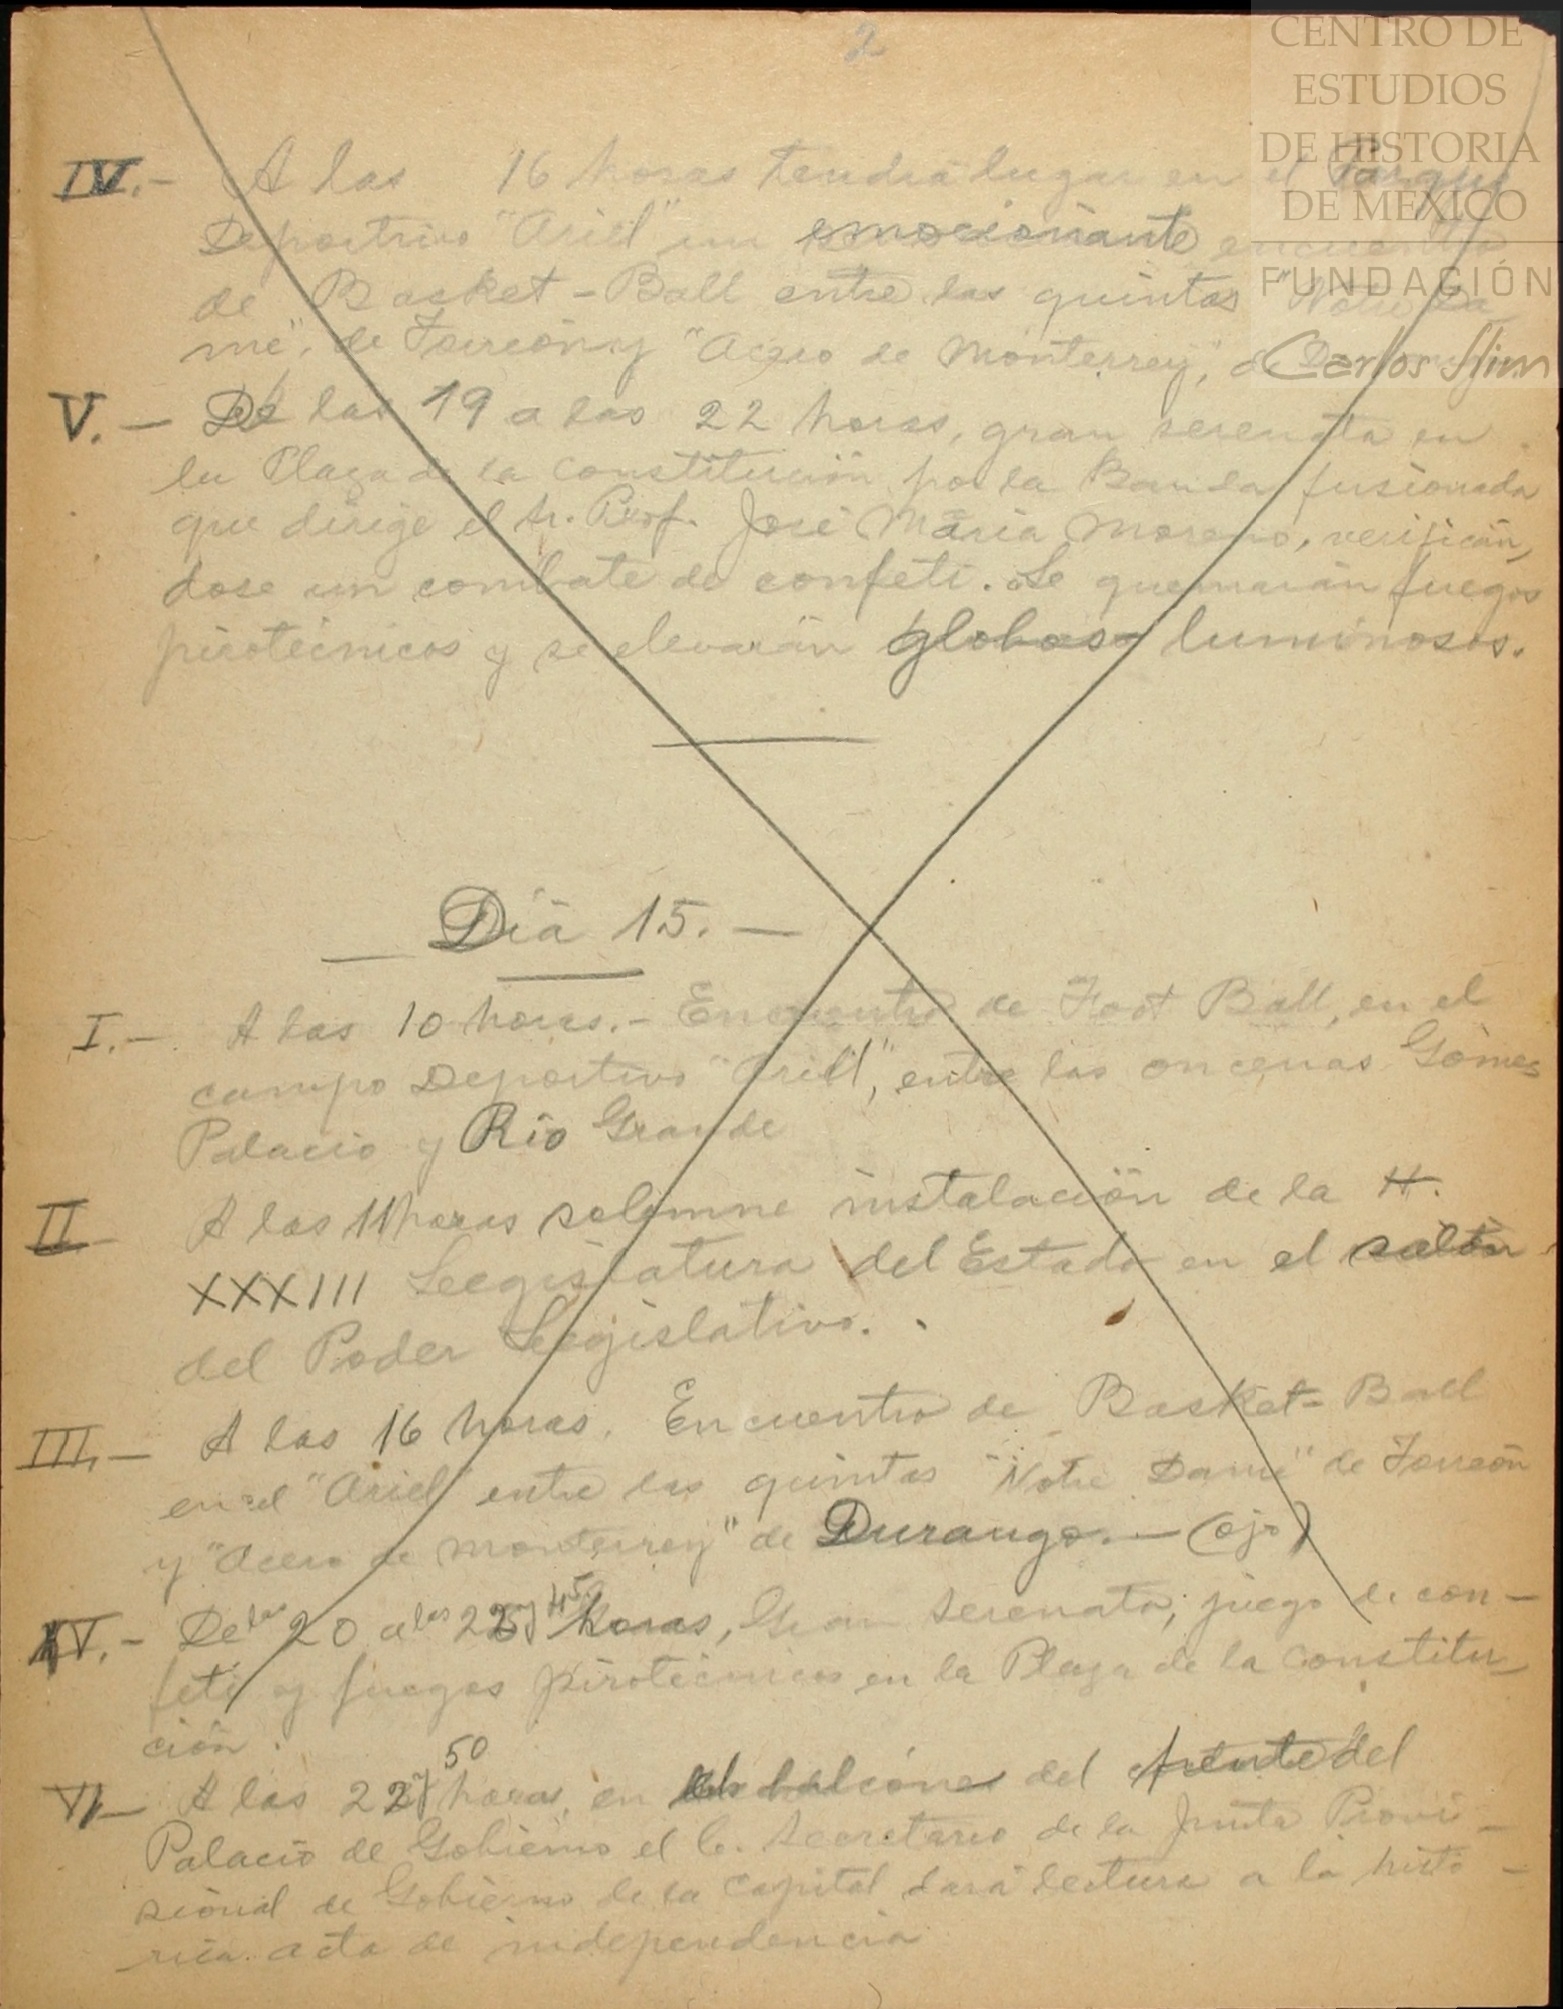 2
CENTRO DE
ESTUDIOS
DE HISTORIA
DE MÉXICO
FUNDACIÓN
Carlos Slim
IV.- A las 16 horas tendrá lugar en el Parque
Deportivo "Ariel" un emocionante encuentro
de Basket-Ball entre las quintas "Notre Da
me", de Torreón y "Acero de Monterrey", de
V.- De las 19 a las 22 horas, gran serenata en
la Plaza de la Constitución por la Banda fusionada
que dirige el Sr. Prof. José María Moreno, verificán,
dose un combate de confeti. Se quemarán fuegos
pirotécnicos y se elevarán globos luminosos.
Día 15.-
I.- A las 10 horas.- Encuentro de Foot Ball, en el
campo Deportivo "Ariel", entre las oncenas Gómez
Palacio y Río Grande
II- A las 11 horas solemne instalación de la H.
XXXIII Legislatura del Estado en el salón
del Poder Legislativo.
III.- A las 16 horas. Encuentro de Basket-Ball
en el "Ariel" entre las quintas "Notre Dame" de Torreón
y "Acero de Monterrey" de Durango.- (ojo)
IV.- De las 20 a las 22 y 45 horas, Gran Serenata, juego de con-
feti y fuegos pirotécnicos en la Plaza de la Constitu_
ción.
V- A las 22 y 50 horas, en los balcones del frente del
Palacio de Gobierno el C. Secretario de la Junta Provi-
sional de Gobierno de la Capital dará lectura a la histó-
rica acta de independencia